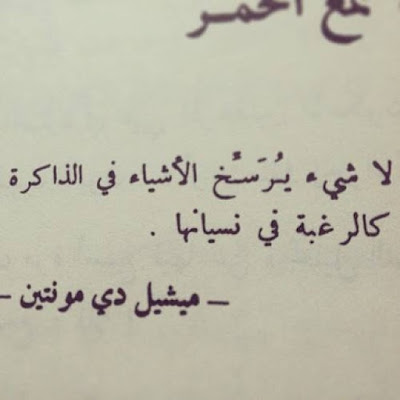 مع الحمر
لا شيء يُرَسِّخ الأشياء في الذاكرة
كالرغبة في نسيانها .
– ميشيل دي مونتين –